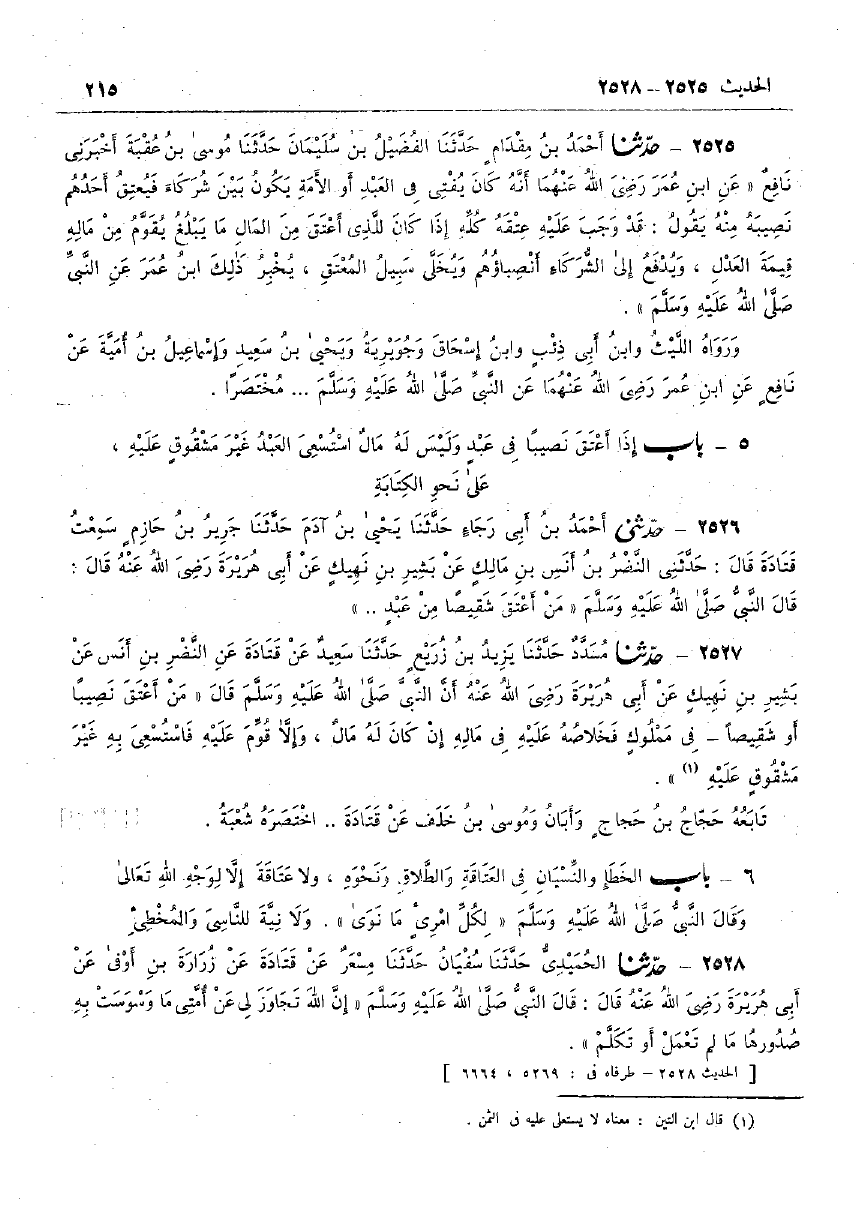 الحديث ٢٥٢٥ – ٢٥٢٨
٢١٥
٢٥٢٥ – حدّثنا أَحْمَدُ بنُ مِقْدَامٍ حَدَّثَنَا الفُضَيْلُ بن سُلَيْمَانَ حَدَّثَنَا مُوسىٰ بنُ عُقْبَةَ أَخْبَرَنِى
نَافِعٌ « عَنِ ابنِ عُمَرَ رَضِىَ اللهُ عَنْهُمَا أَنَّهُ كَانَ يُفْتِى فى العَبْدِ أَوِ الأَمَةِ يَكُونُ بَيْنَ شُرَكَاءَ فَيُعتِقُ أَحَدُهُم
نَصِيبَهُ مِنْهُ يَقُولُ : قَدْ وَجَبَ عَلَيْهِ عِتْقَهُ كُلِّهِ إِذَا كَانَ لِلَّذِى أَعْتَقَ مِنَ المَالِ مَا يَبْلُغُ يُقَوَّمُ مِنْ مَالِهِ
قِيمَةَ العَدْلِ ، وَيُدْفَعُ إِلىٰ الشُّرَكَاءِ أَنْصِبَاؤُهُم وَيُخَلَّى سَبِيلُ المُعْتَقِ ، يُخْبِرُ ذٰلِكَ ابنُ عُمَرَ عَنِ النَّبىِّ
صَلَّىٰ اللهُ عَلَيْهِ وَسَلَّمَ » .
وَرَوَاهُ اللَّيْثُ وابنُ أَبى ذِئْبٍ وابنُ إِسْحَاقَ وَجُوَيْرِيَةُ وَيَحْيىٰ بنُ سَعِيدٍ وَإِسْمَاعِيلُ بنُ أُمَيَّةَ عَنْ
نَافِعٍ عَنِ ابنِ عمَرَ رَضِىَ اللهُ عَنْهُمَا عَنِ النَّبىِّ صَلَّىٰ اللهُ عَلَيْهِ وَسَلَّمَ ... مُخْتَصَرًا .
٥ – باب إِذَا أَعْتَقَ نَصِيبًا فِى عَبْدٍ وَلَيْسَ لَهُ مَالٌ اسْتُسْعِىَ العَبْدُ غَيْرَ مَشْقُوقٍ عَلَيْهِ ،
عَلىٰ نَحوِ الكِتَابَةِ
٢٥٢٦ – حدّثنى أَحْمَدُ بنُ أَبى رَجَاءٍ حَدَّثَنَا يَحْيىٰ بنُ آدَمَ حَدَّثَنَا جَرِيرُ بنُ حَازِمٍ سَمِعْتُ
قَتَادَةَ قَالَ : حَدَّثَنِى النَّضْرُ بنُ أَنَسِ بنِ مَالِكٍ عَنْ بَشِيرِ بنِ نَهِيكٍ عَنْ أَبى هُرَيْرَةَ رَضِىَ اللهُ عَنْهُ قَالَ :
قَالَ النَّبىُّ صَلَّىٰ اللهُ عَلَيْهِ وَسَلَّمَ « مَنْ أَعْتَقَ شَقِيصًا مِنْ عَبْدٍ .. »
٢٥٢٧ – حدّثنا مُسَدَّدٌ حَدَّثَنَا يَزِيدُ بنُ زُرَيْعٍ حَدَّثَنَا سَعِيدٌ عَنْ قَتَادَةَ عَنِ النَّضْرِ بنِ أَنَس عَنْ
بَشِيرِ بنِ نَهِيكٍ عَنْ أَبى هُرَيْرَةَ رَضِىَ اللهُ عَنْهُ أَنَّ النَّبىَّ صَلَّىٰ اللهُ عَلَيْهِ وَسَلَّمَ قَالَ « مَنْ أَعْتَقَ نَصِيبًا
أَو شَقِيصاً – فِى مَمْلُوكٍ فَخَلاصُهُ عَلَيْهِ فِى مَالِهِ إِنْ كَانَ لَهُ مَالٌ ، وَإِلَّا قُوِّمَ عَلَيْهِ فَاسْتُسْعِىَ بِهِ غَيْرَ
مَشْقُوقٍ عَلَيْهِ (١) » .
تَابَعَهُ حَجَّاجُ بنُ حَجاجٍ وَأَبَانُ وَمُوسىٰ بنُ خَلَفٍ عَنْ قَتَادَةَ .. اخْتَصَرَهُ شُعْبَةُ .
٦ – باب الخَطَإِ والنِّسْيَانِ فِى العَتَاقَةِ وَالطَّلَاقِ وَنَحْوِهِ ، ولا عَتَاقَةَ إِلَّا لِوَجْهِ اللهِ تَعَالىٰ
وَقَالَ النَّبىُّ صَلَّىٰ اللهُ عَلَيْهِ وَسَلَّمَ « لِكُلِّ امْرِئٍ مَا نَوَىٰ » . وَلَا نِيَّةَ لِلنَّاسِى وَالمُخْطِئِ
٢٥٢٨ – حدّثنا الحُمَيْدِىُّ حَدَّثَنَا سُفْيَانُ حَدَّثَنَا مِسْعَرٌ عَنْ قَتَادَةَ عَنْ زُرَارَةَ بنِ أَوْفىٰ عَنْ
أَبى هُرَيْرَةَ رَضِىَ اللهُ عَنْهُ قَالَ : قَالَ النَّبىُّ صَلَّىٰ اللهُ عَلَيْهِ وَسَلَّمَ « إِنَّ اللهَ تَجَاوَزَ لِى عَنْ أُمَّتِى مَا وَسْوَسَتْ بِهِ
صُدُورهَا مَا لم تَعْمَلْ أَو تَكَلَّمْ » .
[ الحديث ٢٥٢٨ – طرفاه فى : ٥٢٦٩ ، ٦٦٦٤ ]
(١) قال ابن التين : معناه لا يستغلى عليه فى الثمن .